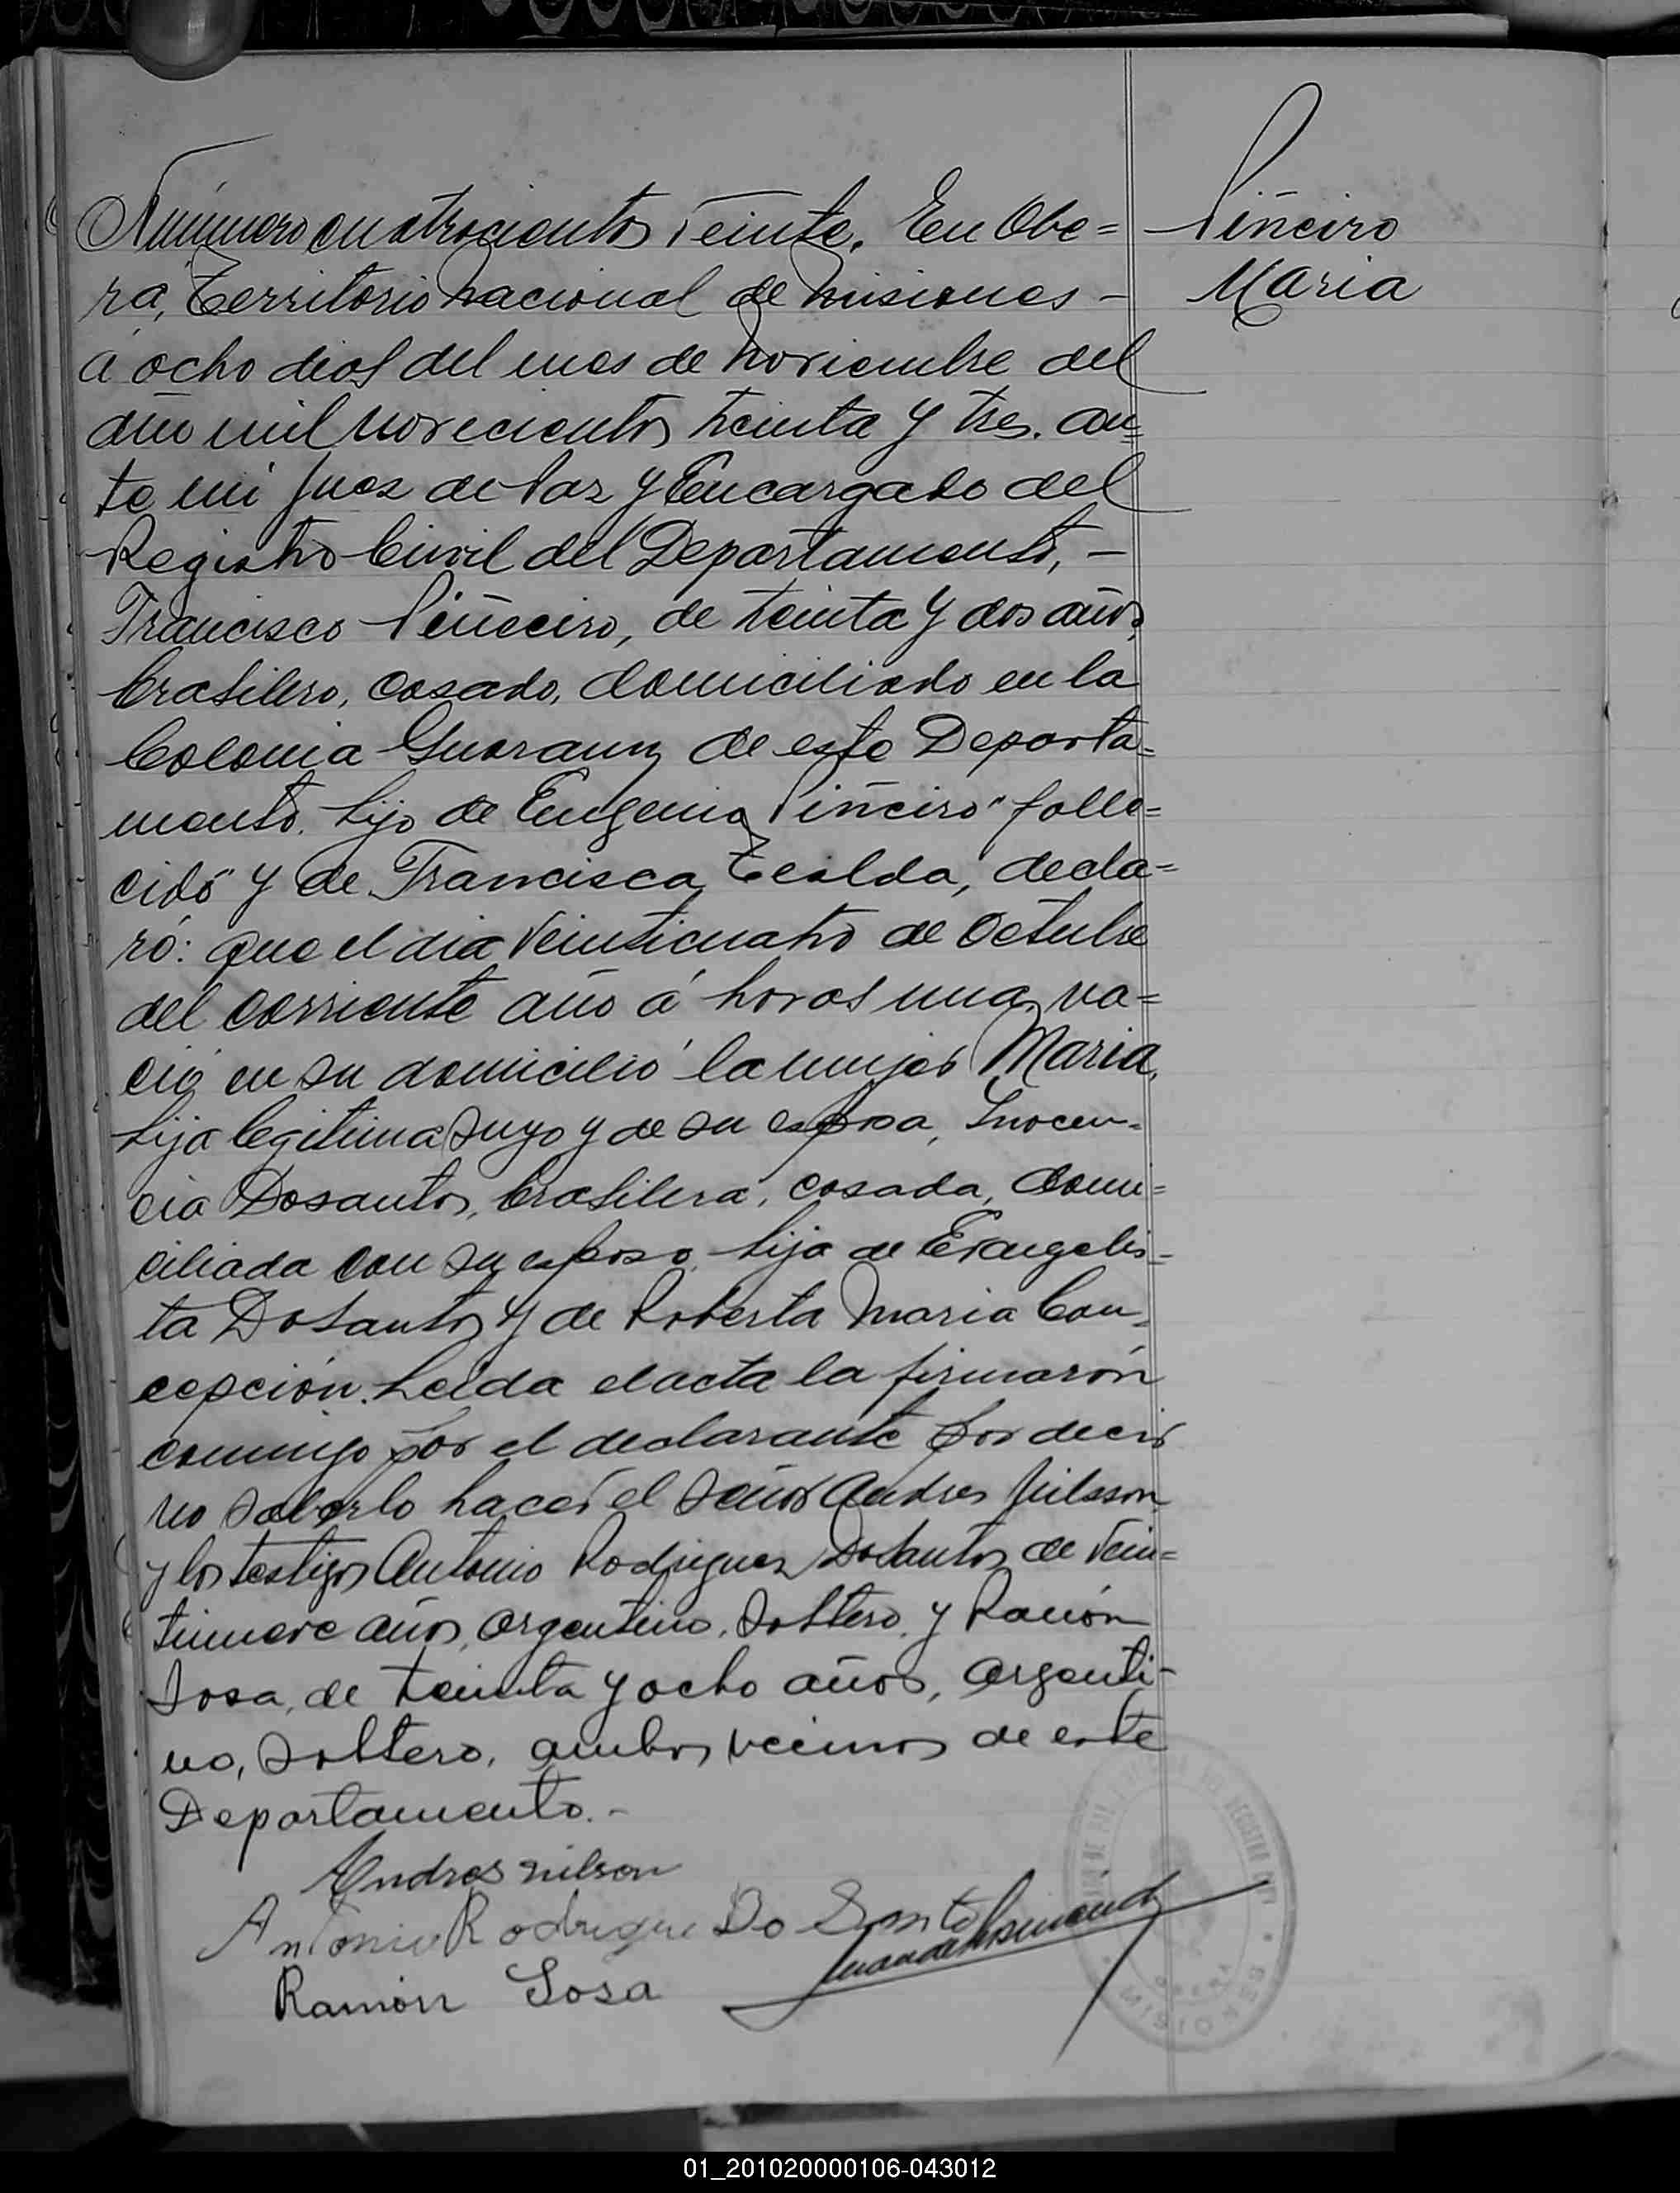 Número cuatrocientos veinte. En Obe=
rá, Territorio Nacional de Misiones -
á ocho dias del mes de Noviembre del
año mil novecientos treinta y tres. an=
te mi Juez de Paz y Encargado del
Registro Civil del Departamento, -
Francisco Piñeiro, de treinta y dos años,
brasilero, casado, domiciliado en la
Colonia Guarany de este Departa=
mento. hijo de Eugenio Piñeiro "falle=
cido" y de Francisca Tealda, decla=
ró: que el dia veinticuatro de Octubre
del corriente año á horas una, na=
ció en su domicilio la mujer Maria,
hija legitima suya y de su esposa, Inocen=
cia Dosantos, brasilera, casada, domi=
ciliada con su esposo, hija de Evangelis=
ta Dosantos y de Roberta Maria Con=
cepción. Leida el acta la firmarón
conmigo por el declarante por decir
no saberlo hacer el señor Andres Nilsson
y los testigos Antonio Rodriguez Dosantos de vein=
tinueve años, argentino, soltero, y Ramón
Sosa, de treinta y ocho años, argenti-
no, soltero, ambos vecinos de este
Departamento.-
Andres nilson
Antonio Rodrigue Do Santo
Ramón Sosa
Piñeiro
Maria
MISIONES
01_201020000106-043012